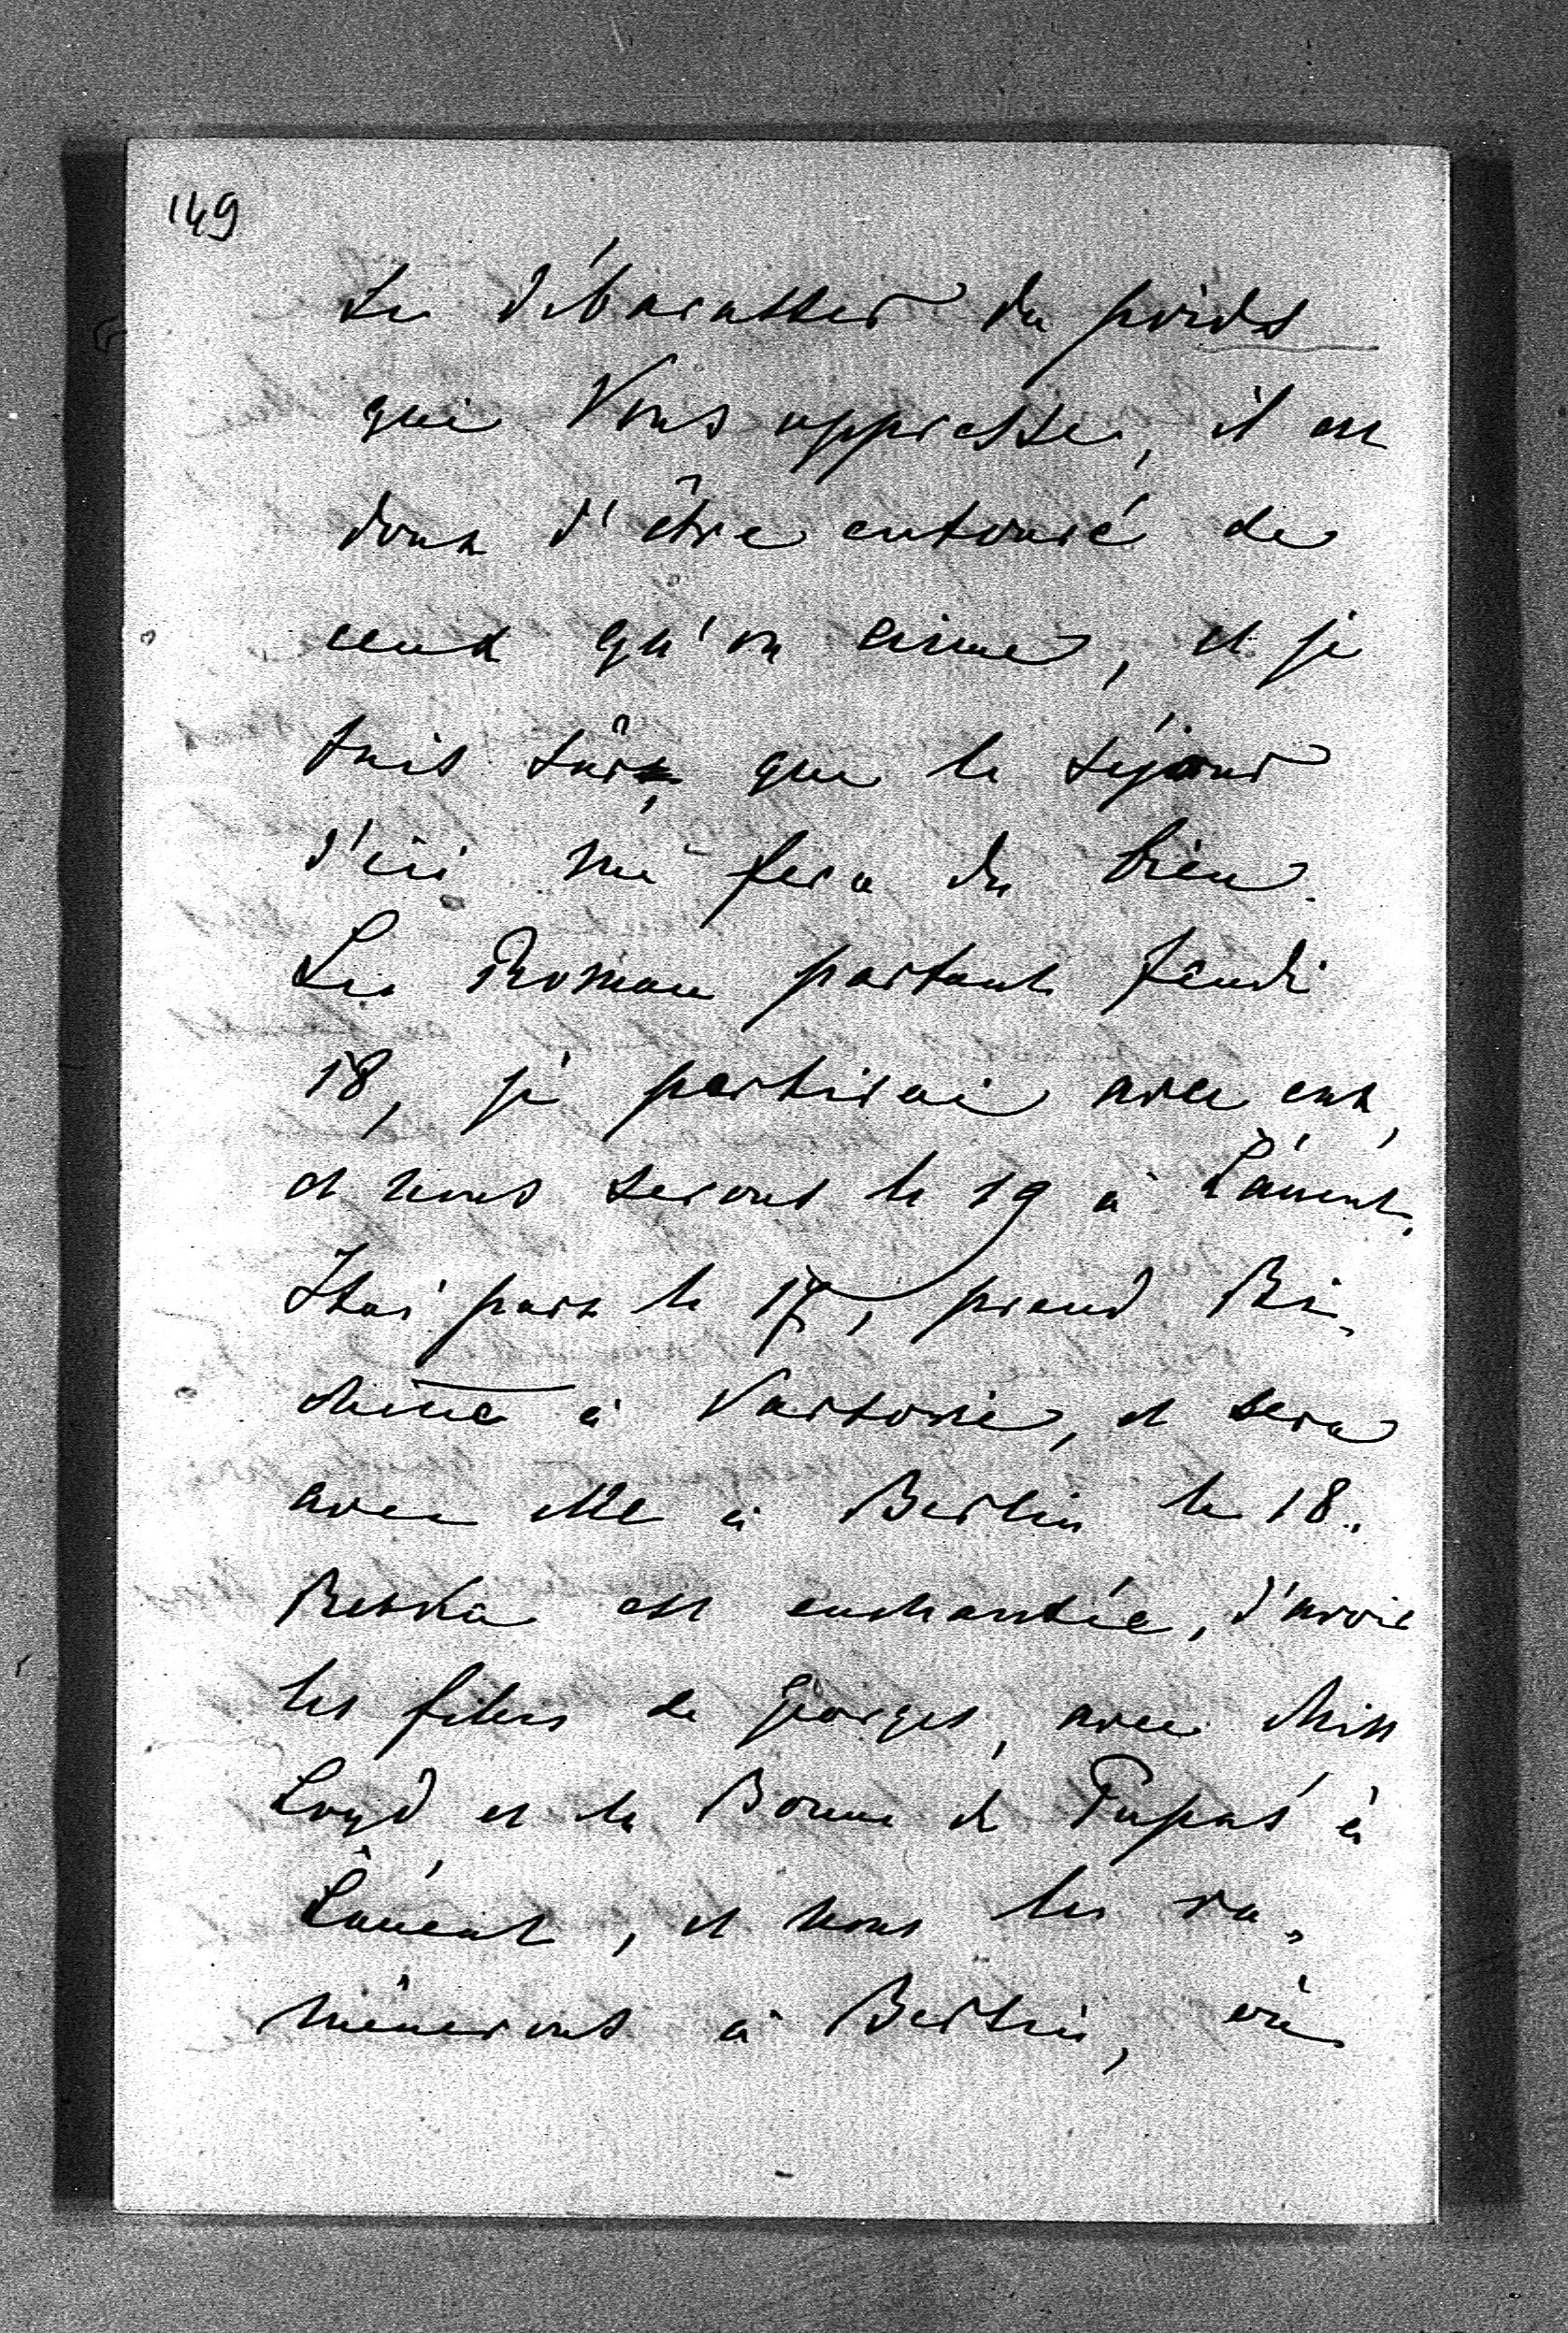 149
se débarasser du poids
qui Vous oppresse, il est
doux d'être entouré de
ceux qu'on aime, et je
suis sûr que le séjour
d'ici me fera du bien.
Les Roman partant Jeudi
18, je partirai avec eux,
et nous serons le 19 à Láncut.
Stas part le 17, prend Bi-
chette à Varsovie, et sera
avec elle à Berlin le 18.
Betka est enchantée, d'avoir
les filles de Georges, avec Miss
Loyd, et la Bonne de Papas à
Láncut, et nous les ra-
mènerons à Berlin, où